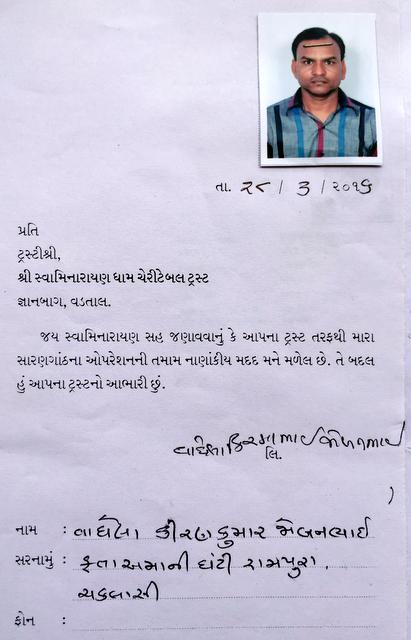 તા. ૨૮ / ૩ / ૨૦૧૬
પ્રતિ
ટ્રસ્ટીશ્રી,
શ્રી સ્વામિનારાયણ ધામ ચેરીટેબલ ટ્રસ્ટ
જ્ઞાનબાગ, વડતાલ.
જય સ્વામિનારાયણ સહ જણાવવાનું કે આપના ટ્રસ્ટ તરફથી મારા
સારણગાંઠના ઓપરેશનની તમામ નાણાંકીય મદદ મને મળેલ છે. તે બદલ
હું આપના ટ્રસ્ટનો આભારી છું.
વાઘેલા
લિ.
નામ : વાઘેલા કીરણકુમાર જીવનભાઈ
સરનામું : ફતાઅમાની ઘંટી રામપુરા.
ચકલાસી
ફોન :